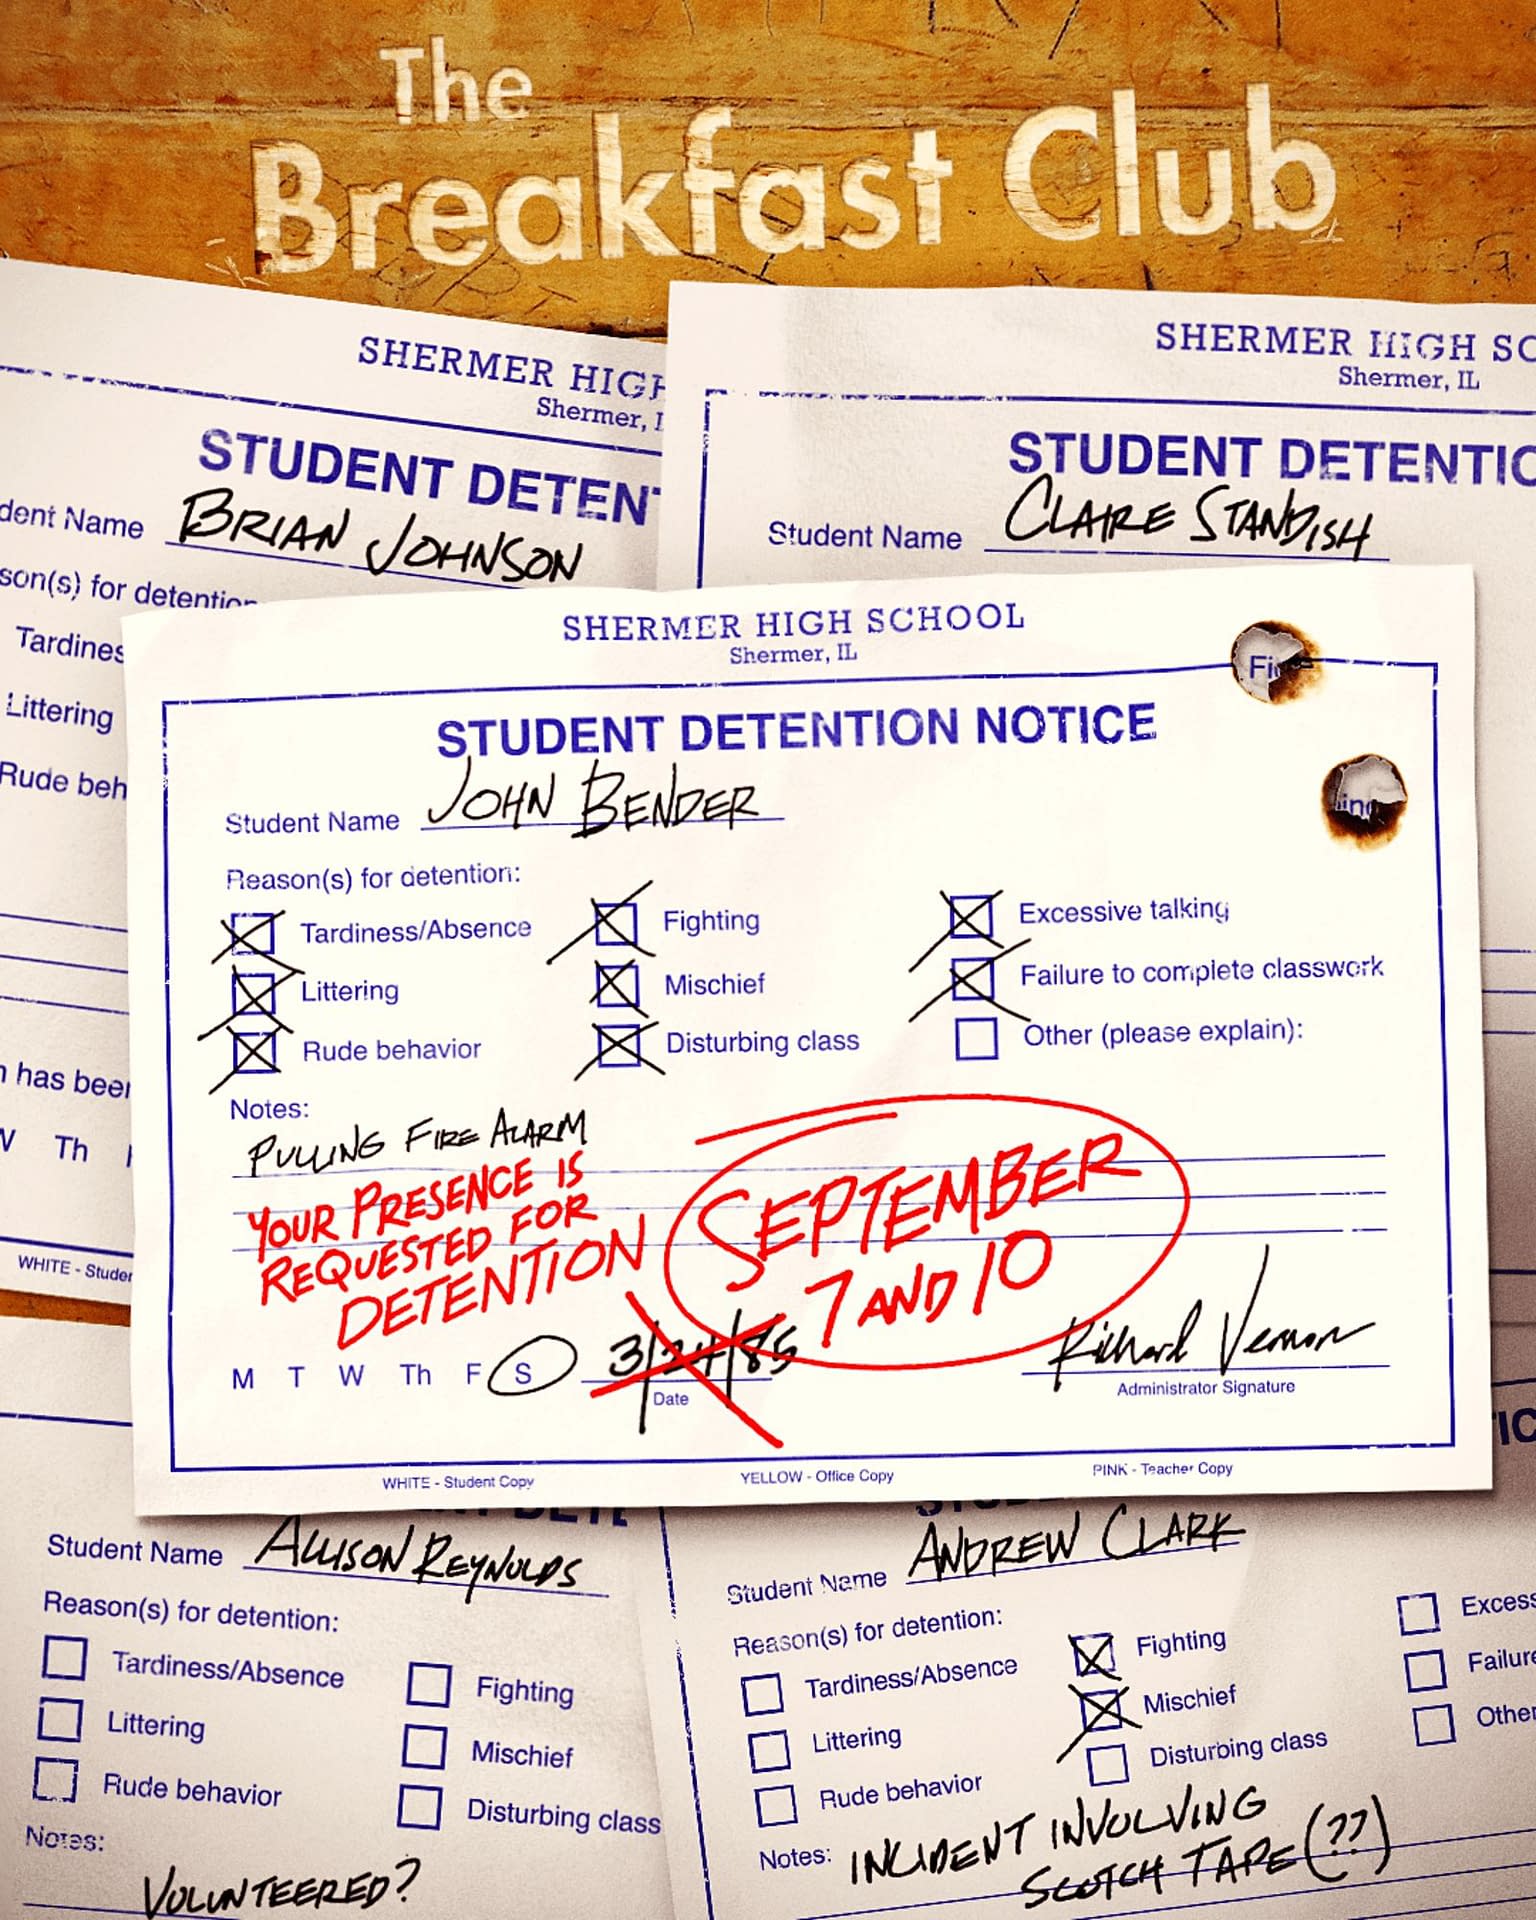 The
Breakfast Club
SHERMER HIGH
Shermer, I
STUDENT DETEN
dent Name BRIAN JOHNSON
son(s) for detention
Tardines
Littering
Rude beh
n has been
W Th
WHITE - Studen
SHERMER HIGH SC
Shermer, IL
STUDENT DETENTIO
Student Name CLAIRE STANDISH
SHERMER HIGH SCHOOL
Shermer, IL
STUDENT DETENTION NOTICE
Student Name JOHN BENDER
Reason(s) for detention:
Tardiness/Absence Fighting Excessive talking
Littering Mischief Failure to complete classwork
Rude behavior Disturbing class Other (please explain):
Notes:
PULLING FIRE ALARM
YOUR PRESENCE IS
REQUESTED FOR
DETENTION
SEPTEMBER
7 AND 10
M T W Th F S 3/24/85
Date
Richard Vernon
Administrator Signature
WHITE - Student Copy YELLOW - Office Copy PINK - Teacher Copy
Student Name ALLISON REYNOLDS
Reason(s) for detention:
Tardiness/Absence Fighting
Littering Mischief
Rude behavior Disturbing class
Notes:
VOLUNTEERED?
Student Name ANDREW CLARK
Reason(s) for detention:
Tardiness/Absence Fighting Excess
Littering Mischief Failure
Rude behavior Disturbing class Other
Notes: INCIDENT INVOLVING
SCOTCH TAPE (??)